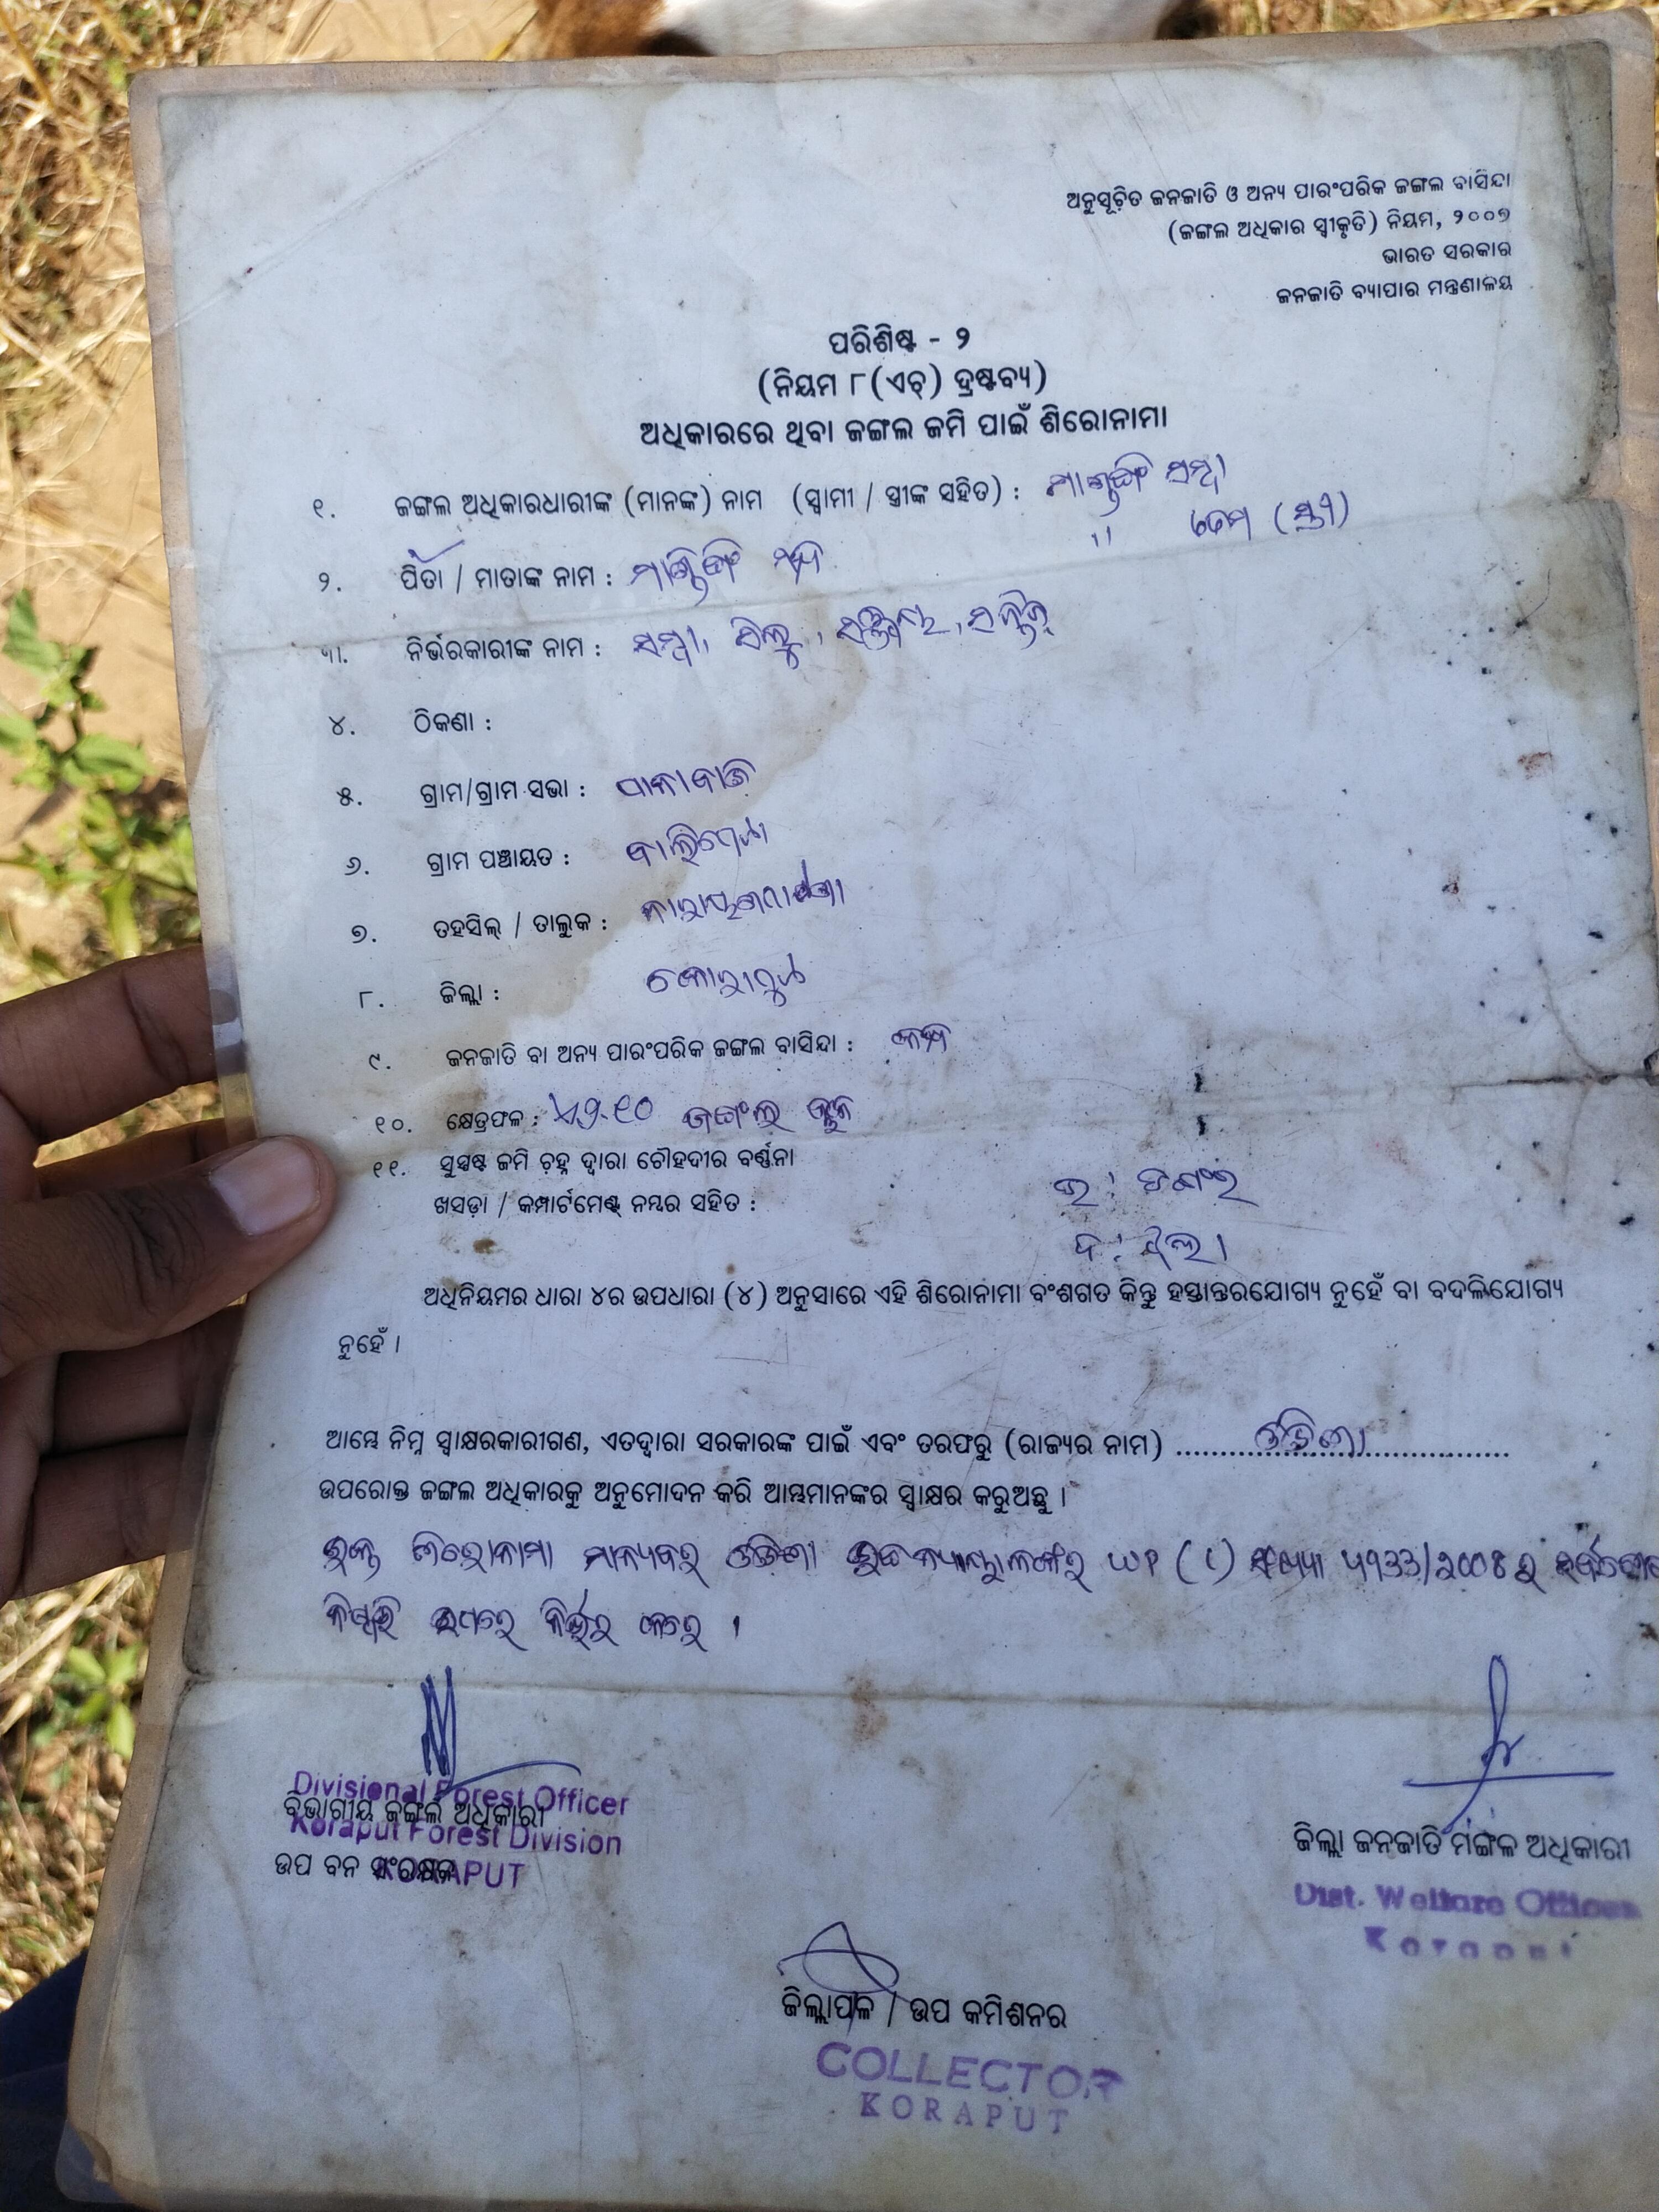 ଅନୁସୂଚିତ ଜନଜାତି ଓ ଅନ୍ୟ ପାରଂପରିକ ଜଙ୍ଗଲ ବାସିନ୍ଦା
(ଜଙ୍ଗଲ ଅଧିକାର ସ୍ୱୀକୃତି) ନିୟମ, ୨୦୦୭
ଭାରତ ସରକାର
ଜନଜାତି ବ୍ୟାପାର ମନ୍ତ୍ରଣାଳୟ
ପରିଶିଷ୍ଟ - ୨
(ନିୟମ ୮(ଏଚ୍) ଦ୍ରଷ୍ଟବ୍ୟ)
ଅଧିକାରରେ ଥିବା ଜଙ୍ଗଲ ଜମି ପାଇଁ ଶିରୋନାମା
୧. ଜଙ୍ଗଲ ଅଧିକାରଧାରୀଙ୍କ (ମାନଙ୍କ) ନାମ (ସ୍ୱାମୀ / ସ୍ତ୍ରୀଙ୍କ ସହିତ) :
(ସ୍ତ୍ରୀ)
୨. ପିତା / ମାତାଙ୍କ ନାମ :
୩. ନିର୍ଭରକାରୀଙ୍କ ନାମ :
୪. ଠିକଣା :
୫. ଗ୍ରାମ/ଗ୍ରାମ ସଭା :
୬. ଗ୍ରାମ ପଞ୍ଚାୟତ : ବାଲିପେଟା
୭. ତହସିଲ୍ / ତାଲୁକ : ନାରାୟଣପାଟଣା
୮. ଜିଲ୍ଲା : କୋରାପୁଟ
୯. ଜନଜାତି ବା ଅନ୍ୟ ପାରଂପରିକ ଜଙ୍ଗଲ ବାସିନ୍ଦା : କନ୍ଧ
୧୦. କ୍ଷେତ୍ରଫଳ : ଜଙ୍ଗଲ
୧୧. ସୁସ୍ପଷ୍ଟ ଜମି ଚିହ୍ନ ଦ୍ୱାରା ଚୌହଦୀର ବର୍ଣ୍ଣନା
ଖସଡ଼ା / କମ୍ପାର୍ଟମେଣ୍ଟ୍ ନମ୍ବର ସହିତ : ଉ: ଡଙ୍ଗର
ଦ:
ଅଧିନିୟମର ଧାରା ୪ର ଉପଧାରା (୪) ଅନୁସାରେ ଏହି ଶିରୋନାମା ବଂଶଗତ କିନ୍ତୁ ହସ୍ତାନ୍ତରଯୋଗ୍ୟ ନୁହେଁ ବା ବଦଳିଯୋଗ୍ୟ
ନୁହେଁ ।
ଆମ୍ଭେ ନିମ୍ନ ସ୍ୱାକ୍ଷରକାରୀଗଣ, ଏତଦ୍ୱାରା ସରକାରଙ୍କ ପାଇଁ ଏବଂ ତରଫରୁ (ରାଜ୍ୟର ନାମ) ........ଓଡ଼ିଶା........
ଉପରୋକ୍ତ ଜଙ୍ଗଲ ଅଧିକାରକୁ ଅନୁମୋଦନ କରି ଆମ୍ଭମାନଙ୍କର ସ୍ୱାକ୍ଷର କରୁଅଛୁ ।
ଉକ୍ତ ଶିରୋନାମା ମାନ୍ୟବର ଓଡ଼ିଶା ଉଚ୍ଚନ୍ୟାୟାଳୟଙ୍କର WP (C) ସଂଖ୍ୟା ୪୯୩୩/୨୦୦୮ ର
ନିଷ୍ପତ୍ତି ଉପରେ ନିର୍ଭର କରେ ।
Divisional Forest Officer
ବିଭାଗୀୟ ଜଙ୍ଗଲ ଅଧିକାରୀ
Koraput Forest Division
ଉପ ବନ ସଂରକ୍ଷକ
KORAPUT
ଜିଲ୍ଲା ଜନଜାତି ମଙ୍ଗଳ ଅଧିକାରୀ
Dist. Welfare Officer
Koraput
ଜିଲ୍ଲାପାଳ / ଉପ କମିଶନର
COLLECTOR
KORAPUT